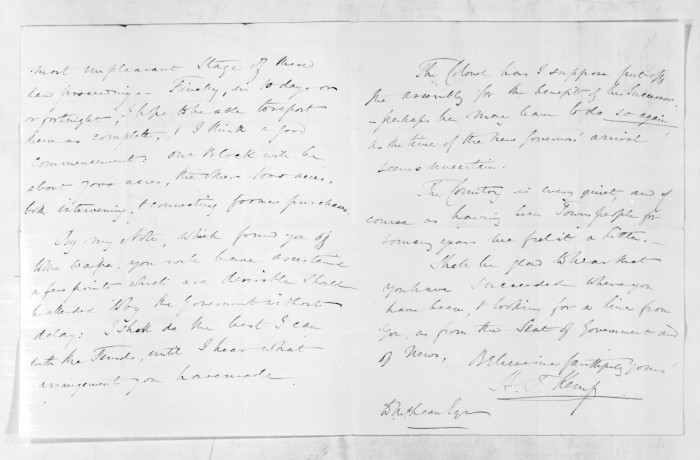 most unpleasant Stage of these
new proceedings. Finally, in 10 days or
or fortnight I hope to be able to report
them as complete, & I think a good
Commencement: One Block will be
about 7000 acres, the other 1000 acres,
both intervening, & connecting former purchases.
By my Note, which found you off
the Waipa, you will have ascertained
a few points which are desirable should
be attended to by the Government without
delay: I shall do the best I can
with the Funds, until I hear what
arrangements you have made.
The Colonel has I suppose put off
the assembly for the benefit of his Successor.
- perhaps he may have to do so again
as the time of the New Governors' arrival
seems uncertain.
The Country is very quiet and of
course as having been Townspeople for
so many years we feel it a little. -
I shall be glad to hear that
you have Succeeded where you
have been, & looking for a line from
you, as from the Seat of Government and
of News,
Believe me faithfully yours
H. T. Kemp
D McLean Esqr